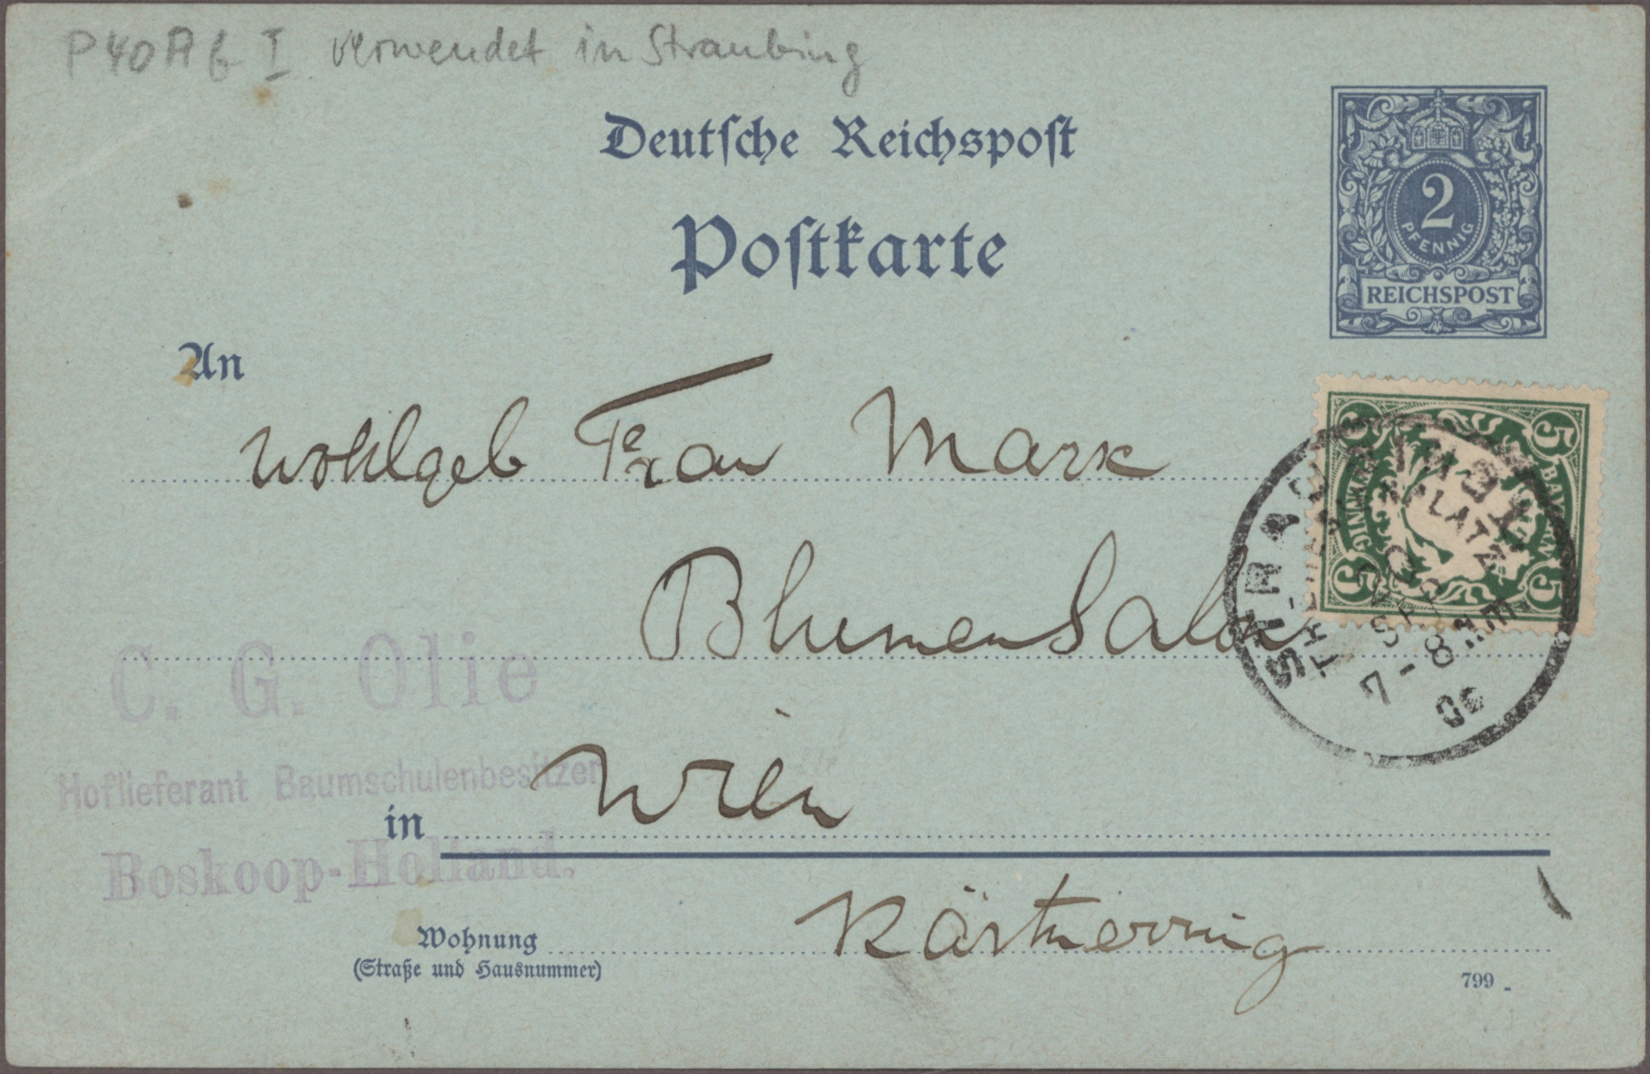 P40Ab I verwendet in Straubing
Deutsche Reichspost
Postkarte
2
PFENNIG
REICHSPOST
An
Wohlgeb Frau Marx
5
BAYERN
5
5
PFENNIG
5
STRAUBING
THERESIENPLATZ
SEP
7-8
Blumen Salon
C. G. Olie
Hoflieferant Baumschulenbesitzer
in Wien
Boskoop-Holland.
Kärtnerring
Wohnung
(Straße und Hausnummer)
799